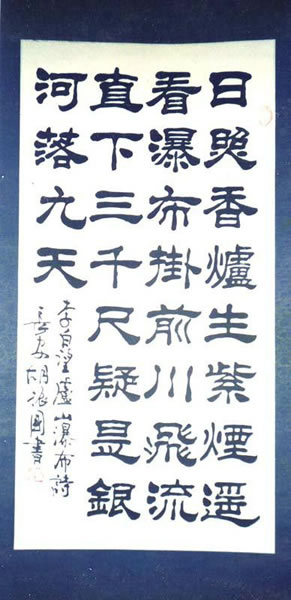 日照香爐生紫煙遥
看瀑布掛前川飛流
直下三千尺疑是銀
河落九天
李白望廬山瀑布詩
長安胡國書